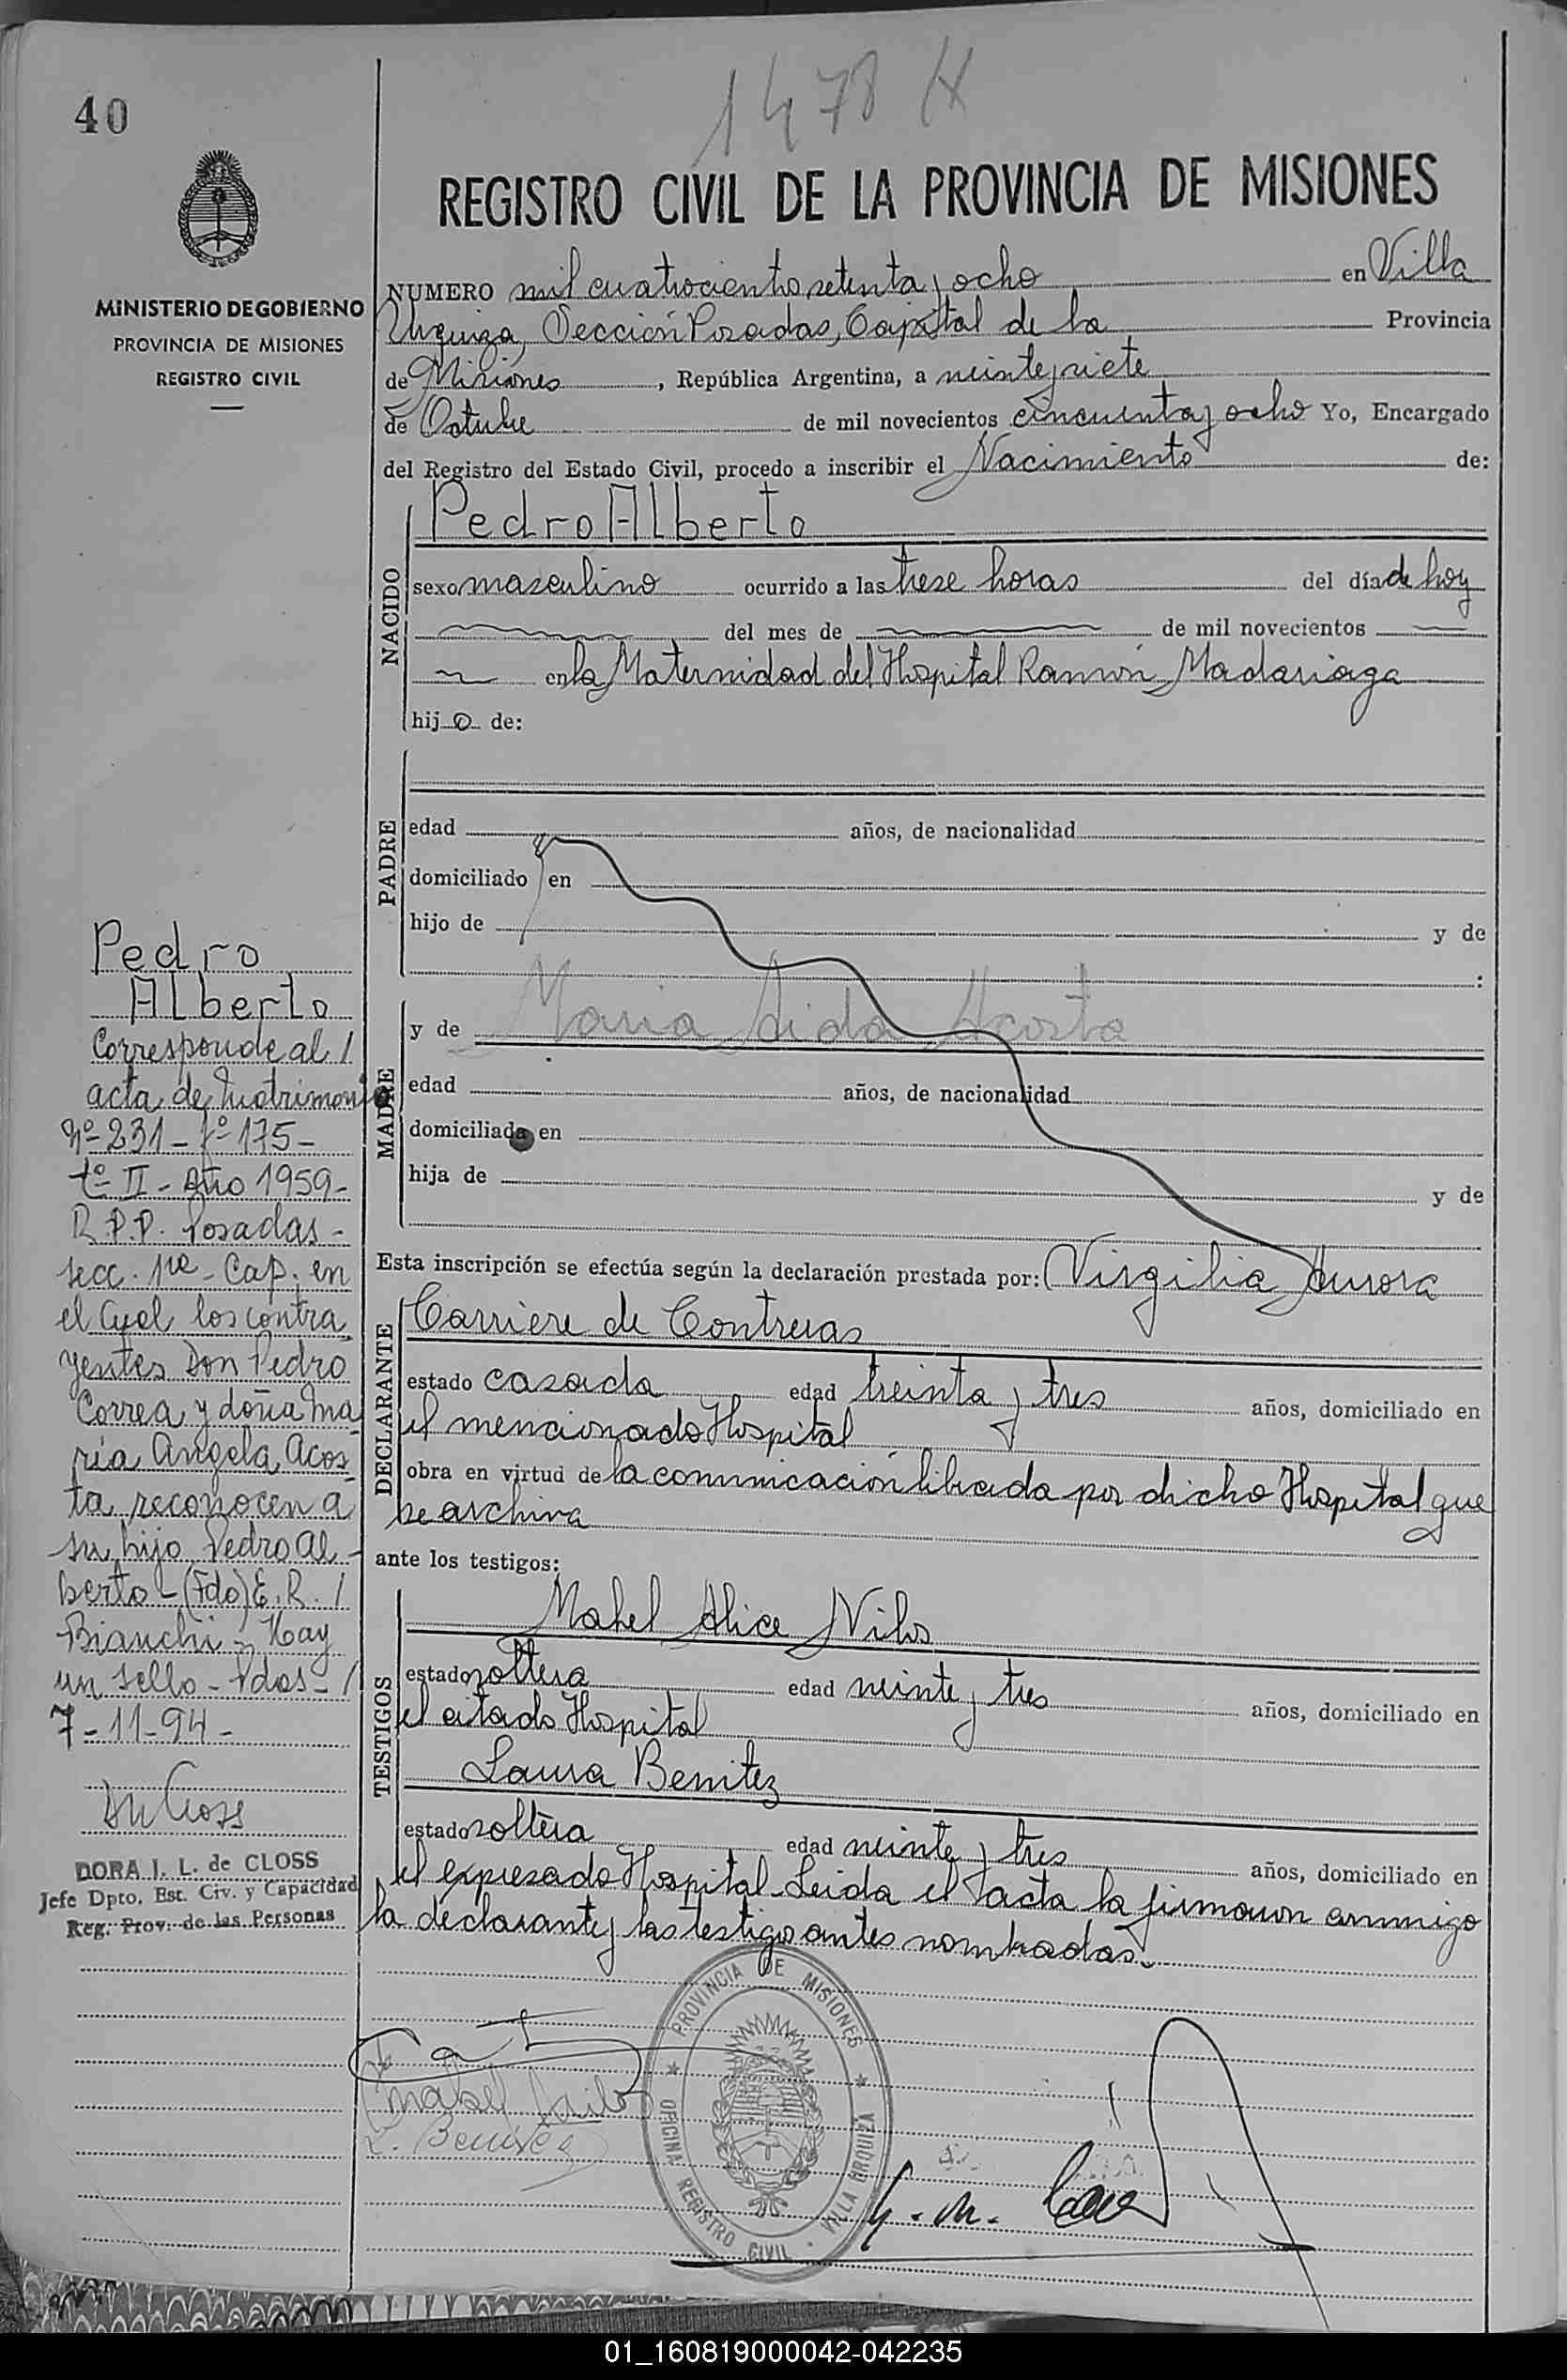 40
1478 H
REGISTRO CIVIL DE LA PROVINCIA DE MISIONES
MINISTERIO DE GOBIERNO
PROVINCIA DE MISIONES
REGISTRO CIVIL
NUMERO mil cuatrocientos setenta y ocho en Villa
Urquiza, Sección Posadas, Capital de la Provincia
de Misiones, República Argentina, a veinte y siete
de Octubre de mil novecientos cincuenta y ocho Yo, Encargado
del Registro del Estado Civil, procedo a inscribir el Nacimiento de:
NACIDO
Pedro Alberto
sexo masculino ocurrido a las trese horas del día de hoy
del mes de de mil novecientos
en la Maternidad del Hospital Ramón Madariaga
hijo de:
PADRE
edad años, de nacionalidad
domiciliado en
hijo de y de
:
MADRE
y de Maria Aida Acosta
edad años, de nacionalidad
domiciliada en
hija de y de
Esta inscripción se efectúa según la declaración prestada por: Virgilia Aurora
DECLARANTE
Carriere de Contreras
estado casada edad treinta y tres años, domiciliado en
el mencionado Hospital
obra en virtud de la comunicación librada por dicho Hospital que
se archiva
ante los testigos:
TESTIGOS
Mabel Alice Nilo
estado soltera edad veinte y tres años, domiciliado en
el citado Hospital
Laura Benitez
estado soltera edad veinte y tres años, domiciliado en
el expresado Hospital. Leida el acta la firmaron conmigo
la declarante y las testigos antes nombradas.
Pedro
Alberto
Corresponde al /
acta de Matrimonio
Nº 231 - fº 175 -
tº II - Año 1959 -
R.P.P. Posadas -
secc. 1ra - Cap. en
el Cual los contra
yentes Don Pedro
Correa y doña Ma
ría Angela Acos
ta reconocen a
su hijo Pedro Al -
berto - (Fdo) E. R. /
Bianchi - Hay
un sello - Pdas - /
7 - 11 - 94 -
DORA I. L. de CLOSS
Jefe Dpto. Est. Civ. y Capacidad
Reg. Prov. de las Personas
Mabel Nilo
L. Benitez
PROVINCIA DE MISIONES
OFICINA REGISTRO CIVIL - VILLA URQUIZA
01_160819000042-042235